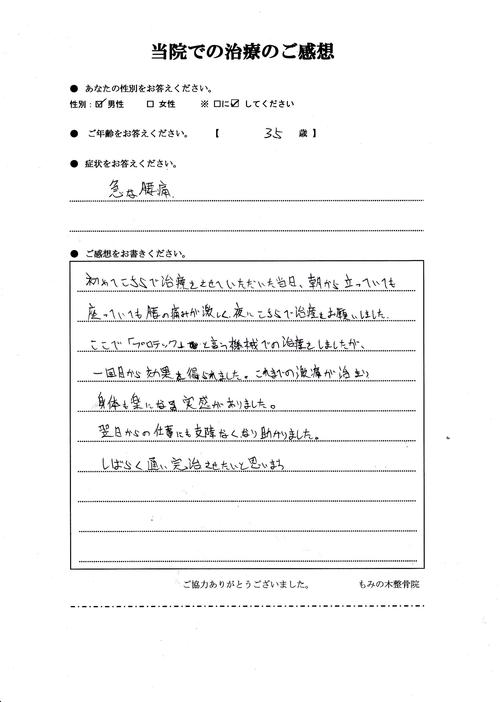 当院での治療のご感想
● あなたの性別をお答えください。
性別：☑男性 □ 女性 ※ □に☑ してください
● ご年齢をお答えください。 【 35 歳 】
● 症状をお答えください。
急な腰痛
● ご感想をお書きください。
初めてこちらで治療をさせていただいた当日、朝から立っていても
座っていても腰の痛みが激しく、夜にこちらで治療をお願いしました。
ここで「プロテック」と言う機械での治療をしましたが、
一回目から効果を得られました。これまでの激痛が治まり
身体も楽になる実感がありました。
翌日からの仕事にも支障なくなり助かりました。
しばらく通い完治させたいと思います
ご協力ありがとうございました。 もみの木整骨院